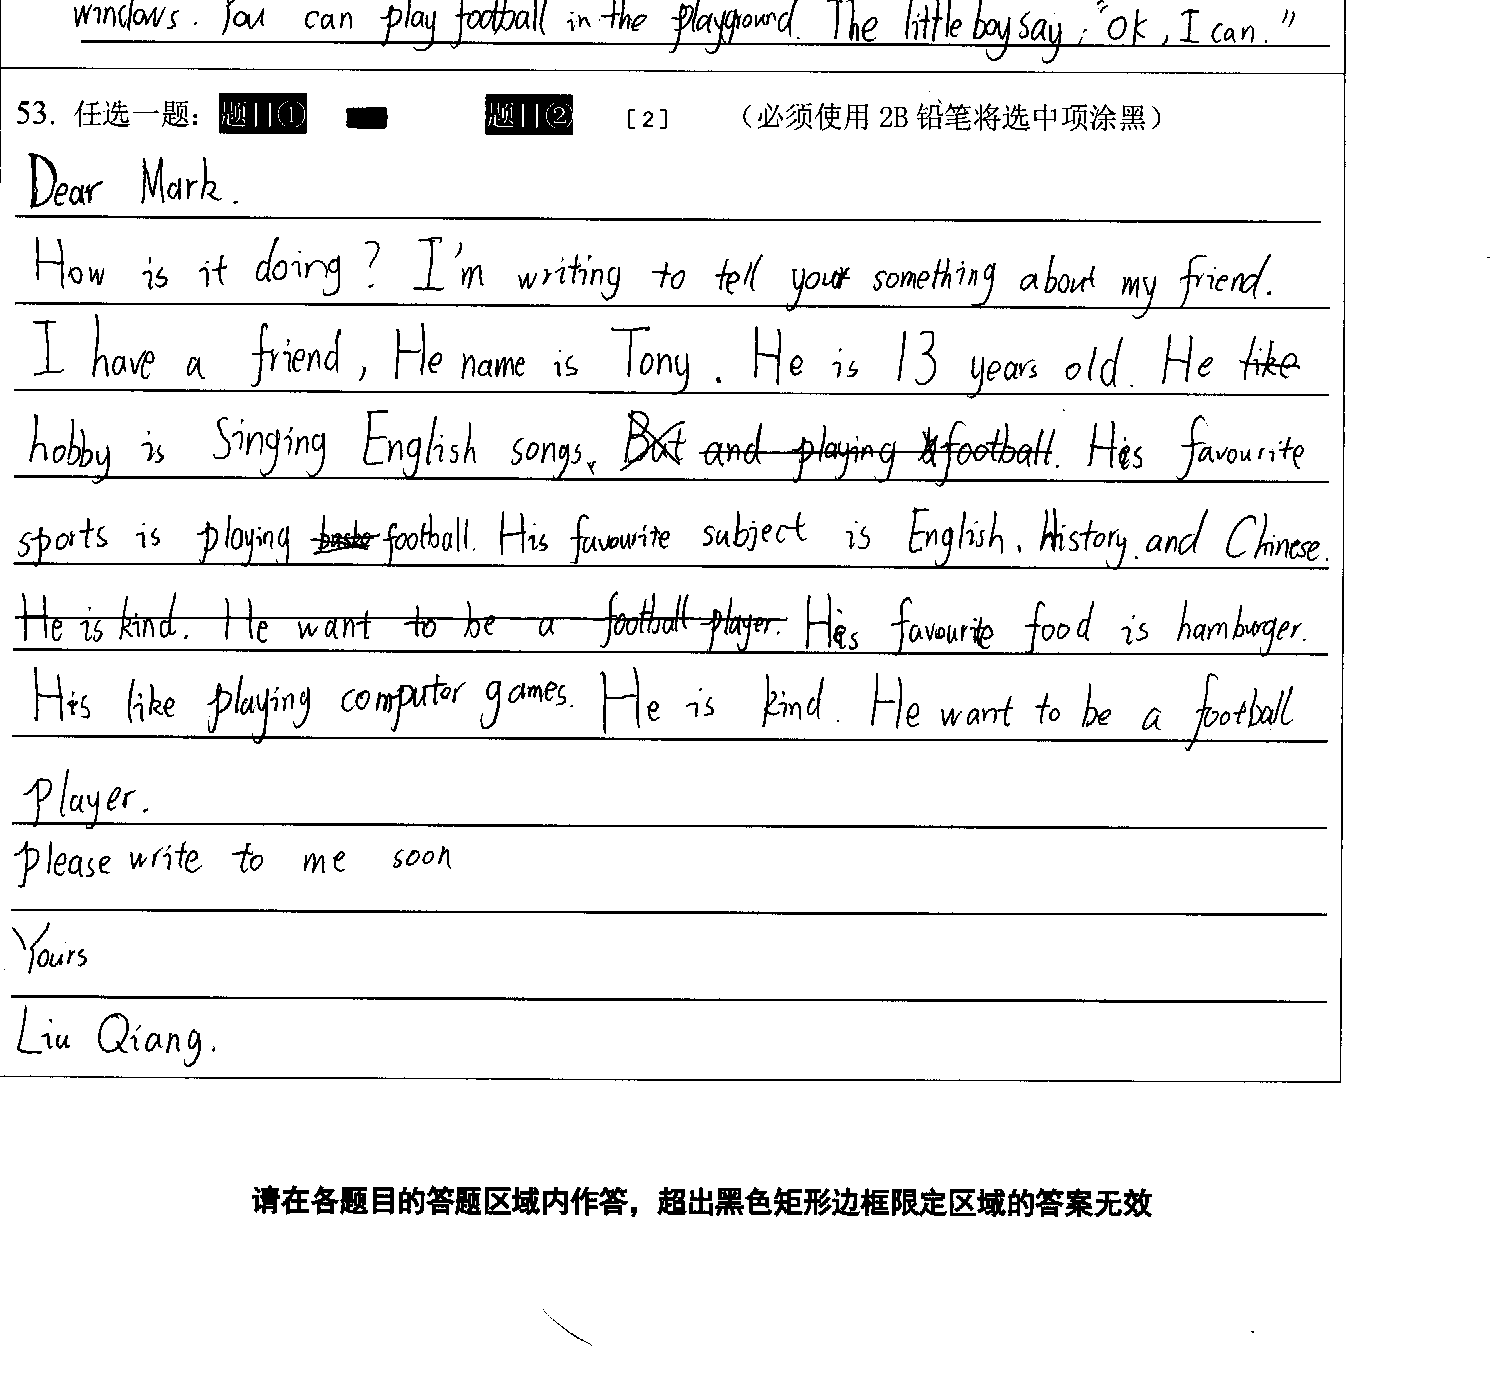 windows. You can play football in the playground. The little boy say, "OK, I can."
53. 任选一题: 题目① 题目② [2] (必须使用 2B 铅笔将选中项涂黑)
Dear Mark.
How is it doing? I'm writing to tell your something about my friend.
I have a friend, He name is Tony. He is 13 years old. He like
hobby is Singing English songs. But and playing football. His favourite
sports is playing baske football. His favourite subject is English. History. and Chinese.
He is kind. He want to be a football player. His favourite food is hamburger.
His like playing computer games. He is kind. He want to be a football
player.
please write to me soon
Yours
Liu Qiang.
请在各题目的答题区域内作答，超出黑色矩形边框限定区域的答案无效